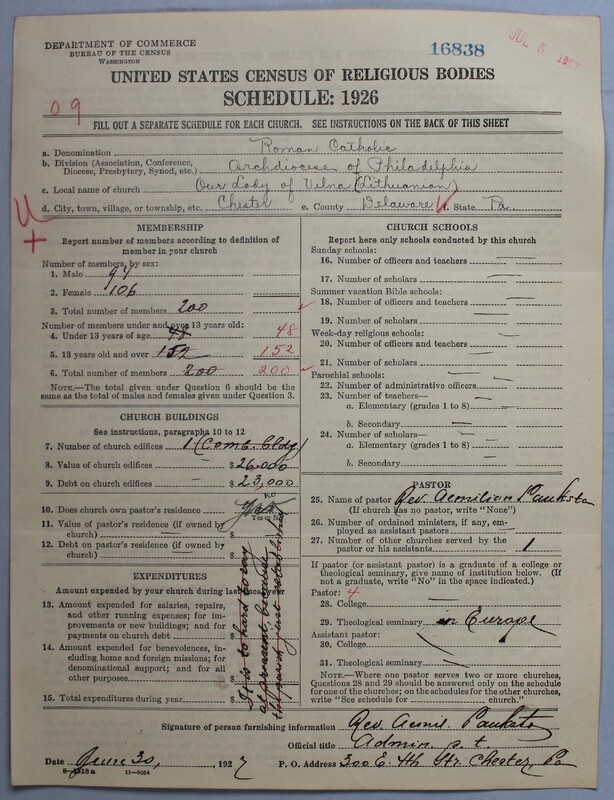 DEPARTMENT OF COMMERCE
BUREAU OF THE CENSUS
WASHINGTON
16838
JUL 5 1927
UNITED STATES CENSUS OF RELIGIOUS BODIES
SCHEDULE: 1926
09
FILL OUT A SEPARATE SCHEDULE FOR EACH CHURCH. SEE INSTRUCTIONS ON THE BACK OF THIS SHEET
a. Denomination Roman Catholic
b. Division (Association, Conference, Diocese, Presbytery, Synod, etc.) Archdiocese of Philadelphia
c. Local name of church Our Lady of Vilna (Lithuanian)
d. City, town, village, or township, etc. Chester e. County Delaware f. State Pa
U
+
MEMBERSHIP
Report number of members according to definition of
member in your church
Number of members, by sex:
1. Male 94
2. Female 106
3. Total number of members 200
Number of members under and over 13 years old:
4. Under 13 years of age 48 48
5. 13 years old and over 152 152
6. Total number of members 200 200
NOTE.—The total given under Question 6 should be
the same as the total of males and females given under Question 3.
CHURCH BUILDINGS
See instructions, paragraphs 10 to 12
7. Number of church edifices 1 (Comb. bldg)
8. Value of church edifices $ 26,000
9. Debt on church edifices $ 23,000
10. Does church own pastor's residence no
Yes or No
11. Value of pastor's residence (if owned by
church) — $
12. Debt on pastor's residence (if owned by
church) — $
EXPENDITURES
Amount expended by church during last fiscal year
13. Amount expended for salaries, repairs,
and other running expenses; for im-
provements or new buildings; and for
payments on church debt $
14. Amount expended for benevolences,
including home and foreign missions; for
denominational support; and for all
other purposes $
15. Total expenditures during year $
It is to hard to say
at present, because
the parish just established
CHURCH SCHOOLS
Report here only schools conducted by this church
Sunday schools:
16. Number of officers and teachers —
17. Number of scholars —
Summer vacation Bible schools:
18. Number of officers and teachers —
19. Number of scholars —
Week-day religious schools:
20. Number of officers and teachers —
21. Number of scholars —
Parochial schools:
22. Number of administrative officers —
23. Number of teachers—
a. Elementary (grades 1 to 8) —
b. Secondary —
24. Number of scholars—
a. Elementary (grades 1 to 8) —
b. Secondary —
PASTOR
25. Name of pastor Rev. Aemilian Pauksta
(If church has no pastor, write "None")
26. Number of ordained ministers, if any, em-
ployed as assistant pastors
27. Number of other churches served by the
pastor or his assistants 1
If pastor (or assistant pastor) is a graduate of a college or
theological seminary, give name of institution below. (If
not a graduate, write "No" in the space indicated.)
Pastor: 4
28. College
29. Theological seminary in Europe
Assistant pastor:
30. College
31. Theological seminary —
NOTE.—Where one pastor serves two or more churches,
Questions 28 and 29 should be answered only on the schedule
for one of the churches; on the schedules for the other churches,
write "See schedule for church."
Signature of person furnishing information Rev. Aemil. Pauksta
Official title Admin. p. t.
Date June 30, 1927 P. O. Address 300 E. 4th Str. Chester, Pa
8-4318a 11-9034